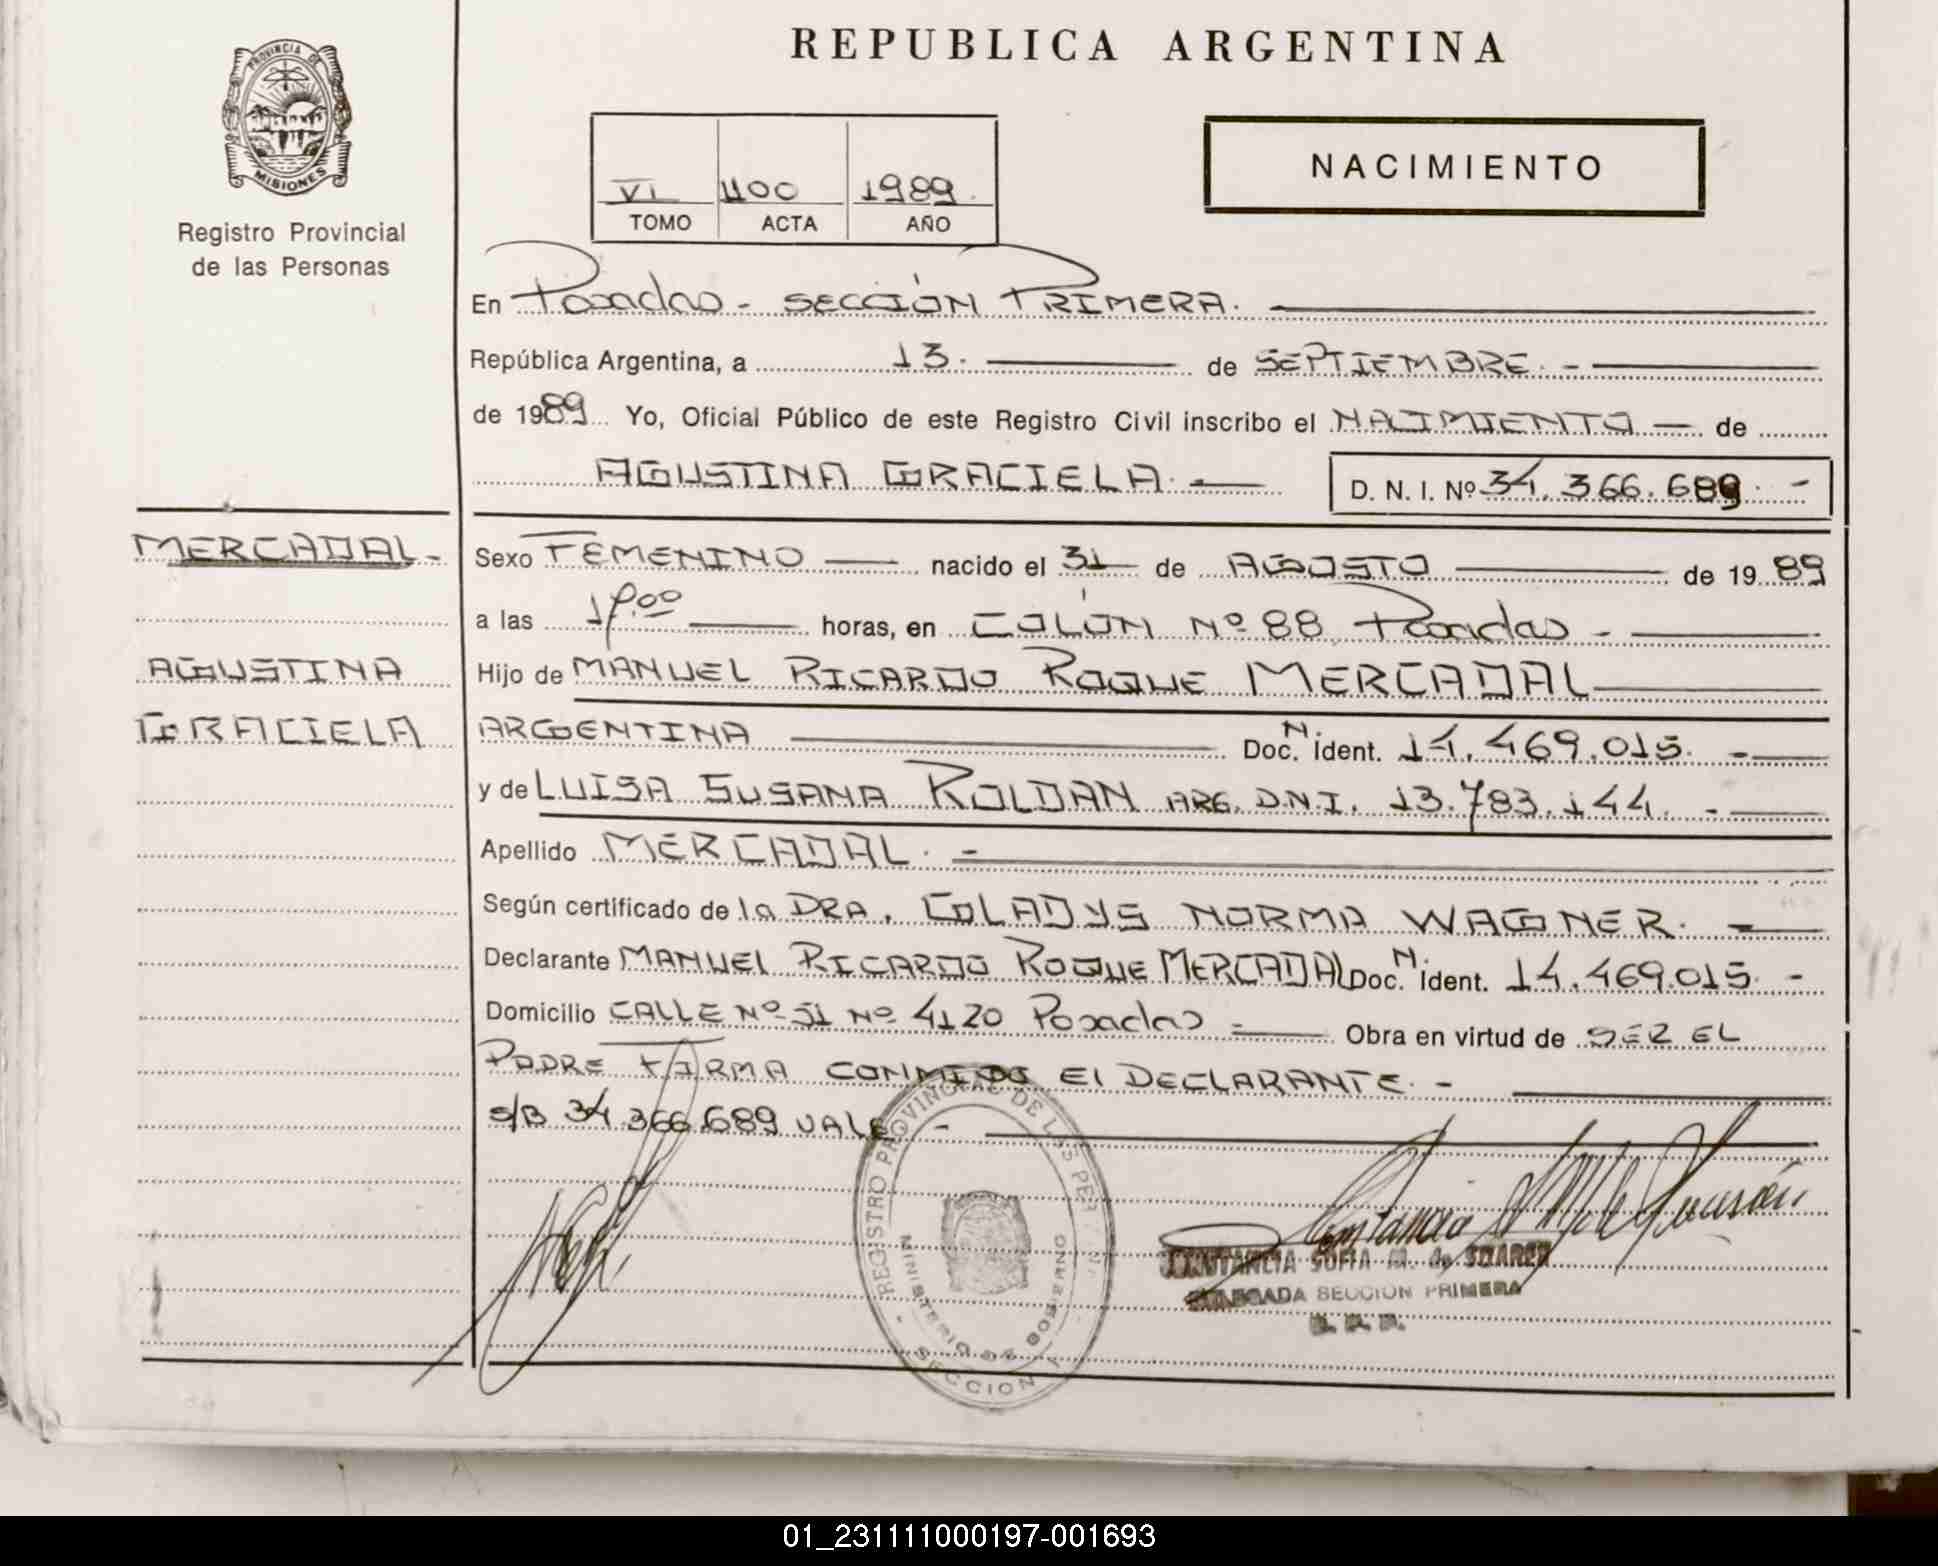 REPUBLICA ARGENTINA
PROVINCIA DE
MISIONES
Registro Provincial
de las Personas
VI 1100 1989.
TOMO ACTA AÑO
NACIMIENTO
En Posadas - SECCIÓN PRIMERA.
República Argentina, a 13. de SEPTIEMBRE. -
de 1989 Yo, Oficial Público de este Registro Civil inscribo el NACIMIENTO — de
AGUSTINA GRACIELA. — D. N. I. Nº 34.366.689 -
MERCADAL -
Sexo FEMENINO — nacido el 31 — de AGOSTO — de 19 89
a las horas, en COLÓN Nº 88 Posadas -
AGUSTINA
GRACIELA
Hijo de MANUEL RICARDO ROQUE MERCADAL
ARGENTINA — Doc. N. ident. 14.469.015. -
y de LUISA SUSANA ROLDAN ARG. D.N.I. 13.783.144. -
Apellido MERCADAL. -
Según certificado de la DRA. GLADYS NORMA WAGNER. —
Declarante MANUEL RICARDO ROQUE MERCADAL Doc. N. ident. 14.469.015. -
Domicilio CALLE Nº 51 Nº 4120 Posadas - Obra en virtud de SER EL
PADRE FIRMA CONMIGO El DECLARANTE. -
S/B 34.366.689 VALE -
REGISTRO PROVINCIAL DE LAS PER
MINISTERIO DE GOBIERNO
SECCION 1
CONSTANCIA SOFIA M. de SUAREZ
DELEGADA SECCION PRIMERA
01_231111000197-001693